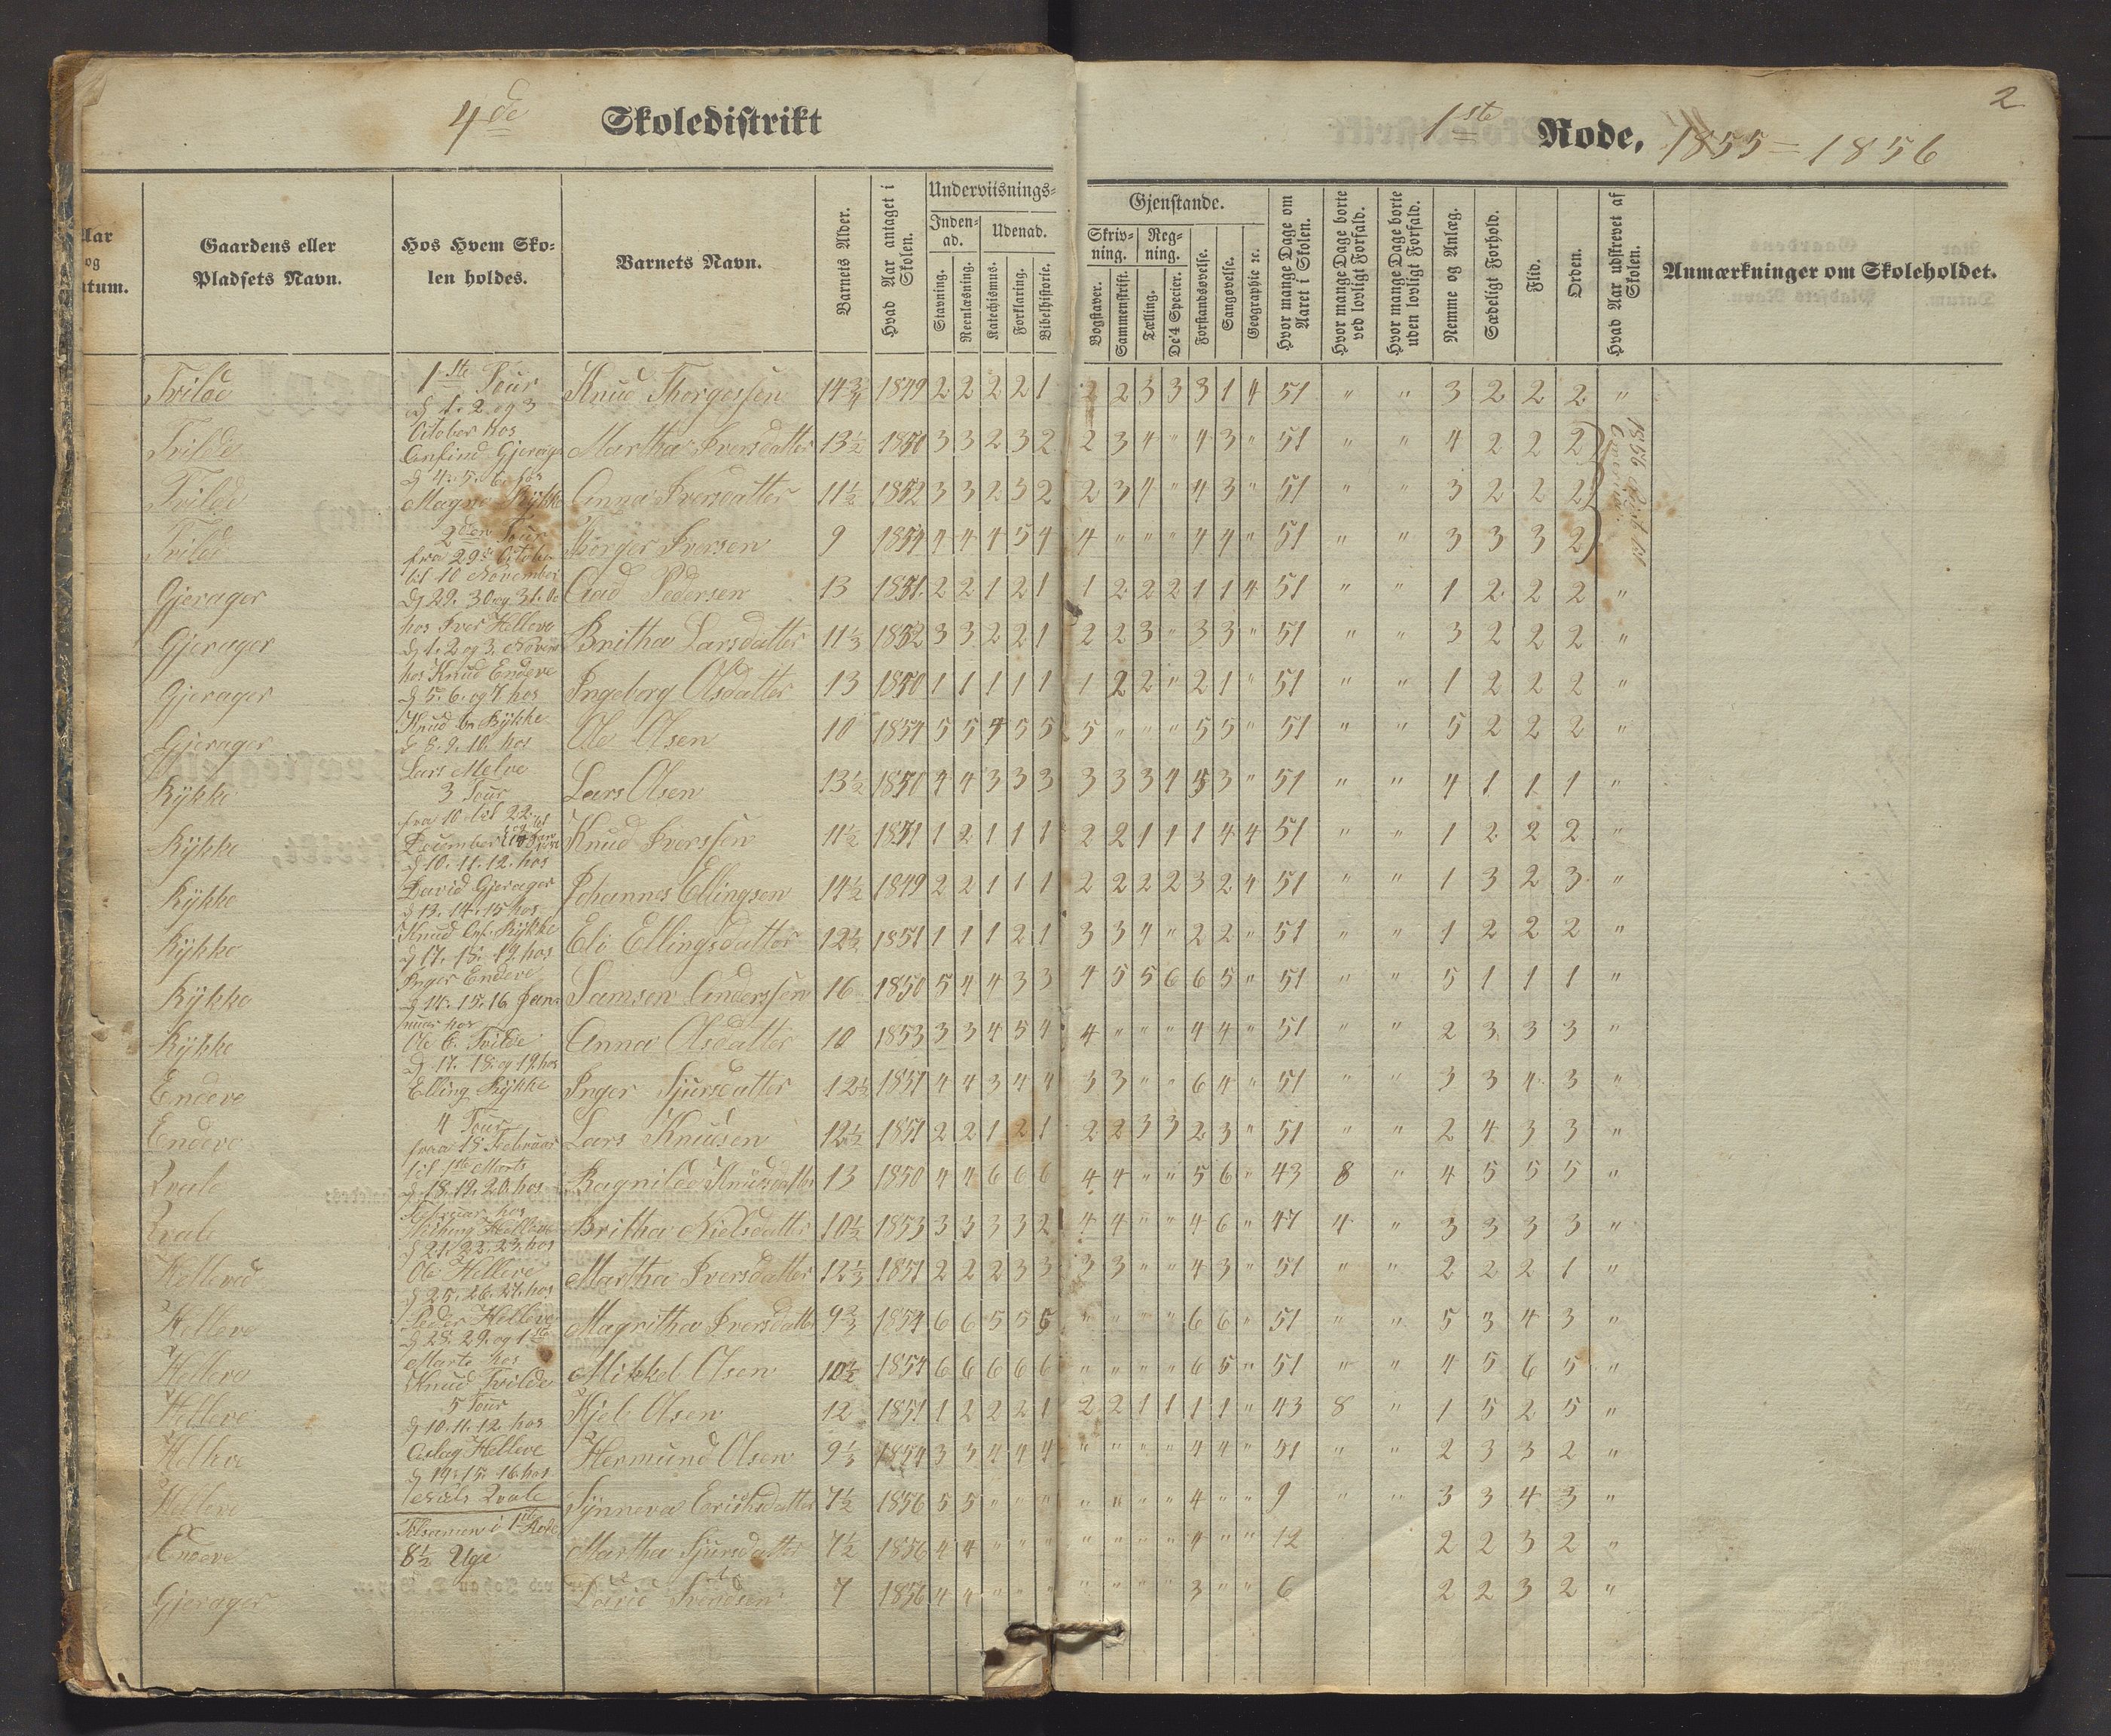 4de Skoledistrikt
1ste Rode, 1855=1856
2
Aar og Datum.
Gaardens eller Pladsets Navn.
Hos Hvem Skolen holdes.
Barnets Navn.
Barnets Alder.
Hvad Aar antaget i Skolen.
Underviisnings=
Gjenstande.
Inden-ad.
Udenad.
Skriv-ning.
Reg-ning.
Stavning.
Reenlæsning.
Katechismus.
Forklaring.
Bibelhistorie.
Bogstaver.
Sammenskrift.
Tælling.
De 4 Specier.
Forstandsøvelse.
Sangøvelse.
Geographie ec.
Hvor mange Dage om Aaret i Skolen.
Hvor mange Dage borte ved lovligt Forfald.
Hvor mange Dage borte uden lovligt Forfald.
Nemme og Anlæg.
Sædeligt Forhold.
Flid.
Orden.
Hvad Aar udskrevet af Skolen.
Anmærkninger om Skoleholdet.
Tvilde Knud Thorgersen 14 3/4 1849 2 2 2 2 1 2 2 3 3 3 1 4 51 " " 3 2 2 2 "
Tvilde Martha Iversdatter 13 1/2 1850 3 3 2 3 2 2 3 4 " 4 3 " 51 " " 4 2 2 2
Tvilde Anna Iversdatter 11 1/2 1852 3 3 2 3 2 2 3 4 " 4 3 " 51 " " 3 2 2 2
Tvilde Thorger Iversen 9 1854 4 4 4 5 4 4 " " " 4 4 " 51 " " 3 3 3 2
Gjerager Odd Pedersen 13 1851 2 2 1 2 1 1 2 2 2 1 1 4 51 " " 1 2 2 2 "
Gjerager Britha Larsdatter 11 1/3 1852 3 3 2 2 1 2 2 3 " 3 3 " 51 " " 3 2 2 2 "
Gjerager Ingeborg Olsdatter 13 1850 1 1 1 1 1 1 2 2 " 2 1 " 51 " " 1 2 2 2 "
Gjerager Ole Olsen 10 1854 5 5 4 5 5 5 " " " 5 5 " 51 " " 5 2 2 2 "
Rykke Lars Olsen 13 1/2 1850 4 4 3 3 3 3 3 3 4 4 3 " 51 " " 4 1 1 1 "
Rykke Knud Iverssen 11 1/2 1851 1 2 1 1 1 2 2 1 1 1 4 4 51 " " 1 2 2 2 "
Rykke Johannes Ellingsen 14 1/2 1849 2 2 1 1 1 2 2 2 2 3 2 4 51 " " 1 3 2 3 "
Rykke Eli Ellingsdatter 12 1/2 1851 1 1 1 2 1 3 3 4 " 2 2 " 51 " " 1 2 2 2 "
Rykke Samson Anderssen 16 1850 5 4 4 3 3 4 5 5 6 6 5 " 51 " " 5 1 1 1 "
Rykke Anna Olsdatter 10 1853 3 3 4 5 4 4 " " " 4 4 " 51 " " 2 3 3 3 "
Endeve Inger Sjursdatter 12 1/2 1851 4 4 3 4 4 3 3 " " 6 4 " 51 " " 3 3 4 3 "
Endeve Lars Knudsen 12 1/2 1851 2 2 1 2 1 2 2 3 3 2 3 " 51 " " 2 4 3 3 "
Qvale Ragnilde Knudsdatter 13 1850 4 4 6 6 6 4 4 " " 5 6 " 43 8 " 4 5 5 5 "
Qvale Britha Nielsdatter 10 1/2 1853 3 3 3 3 2 4 4 " " 4 6 " 47 4 " 3 3 3 3 "
Helleve Martha Iversdatter 12 1/3 1851 2 2 2 3 3 3 3 " " 4 3 " 51 " " 2 2 2 1 "
Helleve Magritha Iversdatter 9 2/3 1854 6 6 5 5 6 " " " " 6 6 " 51 " " 5 3 4 3 "
Helleve Mikkel Olsen 10 1/2 1854 6 6 6 6 6 " " " " 6 5 " 51 " " 4 5 6 5 "
Helleve Kjel Olsen 12 1851 1 2 2 2 1 2 2 1 1 1 1 " 43 8 " 1 5 2 5 "
Helleve Hermund Olsen 9 1/3 1854 3 3 4 4 4 " " " " 4 4 " 51 " " 2 3 3 2 "
Helleve Synneva Erichsdatter 7 1/2 1856 5 5 " " " " " " " 4 " " 9 " " 3 3 4 3 "
Endeve Martha Sjursdatter 7 1/2 1856 4 4 " " " " " " " 4 " " 12 2 2 3 2 "
Gjerager David Svendsen 7 1856 4 4 " " " " " " " 3 " " 6 2 2 3 2 "
1ste Tour
d 1. 2. og 3
October hos
Anfind Gjerager
d 4. 5. 6 hos
Magne Rykke
2den Tour
fra 29de October
til 10 November
d 29. 30 og 31. Oc
hos Iver Helleve
d 1. 2 og 3. Novem
hos Knud Endeve
d 5. 6. og 7. hos
Knud Rykke
d 8. 9. 10. hos
Lars Melve
3 Tour
fra 10 til 22
December
d 10. 11. 12. hos
David Gjerager
d 13. 14. 15 hos
Knud Rykke
d 17. 18. 19. hos
Inger Endeve
d 14. 15. 16 Jan-
nuar hos
Ole Tvilde
d 17. 18. og 19. hos
Elling Rykke
4 Tour
fra 18 Februar
til 1ste Marts
d 18. 19. 20. hos
Februar hos
Helleve
d 21. 22. 23. hos
Ole Helleve
d 25. 26. 27. hos
Peder Helleve
d 28. 29. og 1ste
Marts hos
Knud Tvilde
5 Tour
d 10. 11. 12. hos
Aslag Helleve
d 14. 15. 16. hos
Qvale
Tilsamen i 1ste Rode
8 1/2 Uge
1856